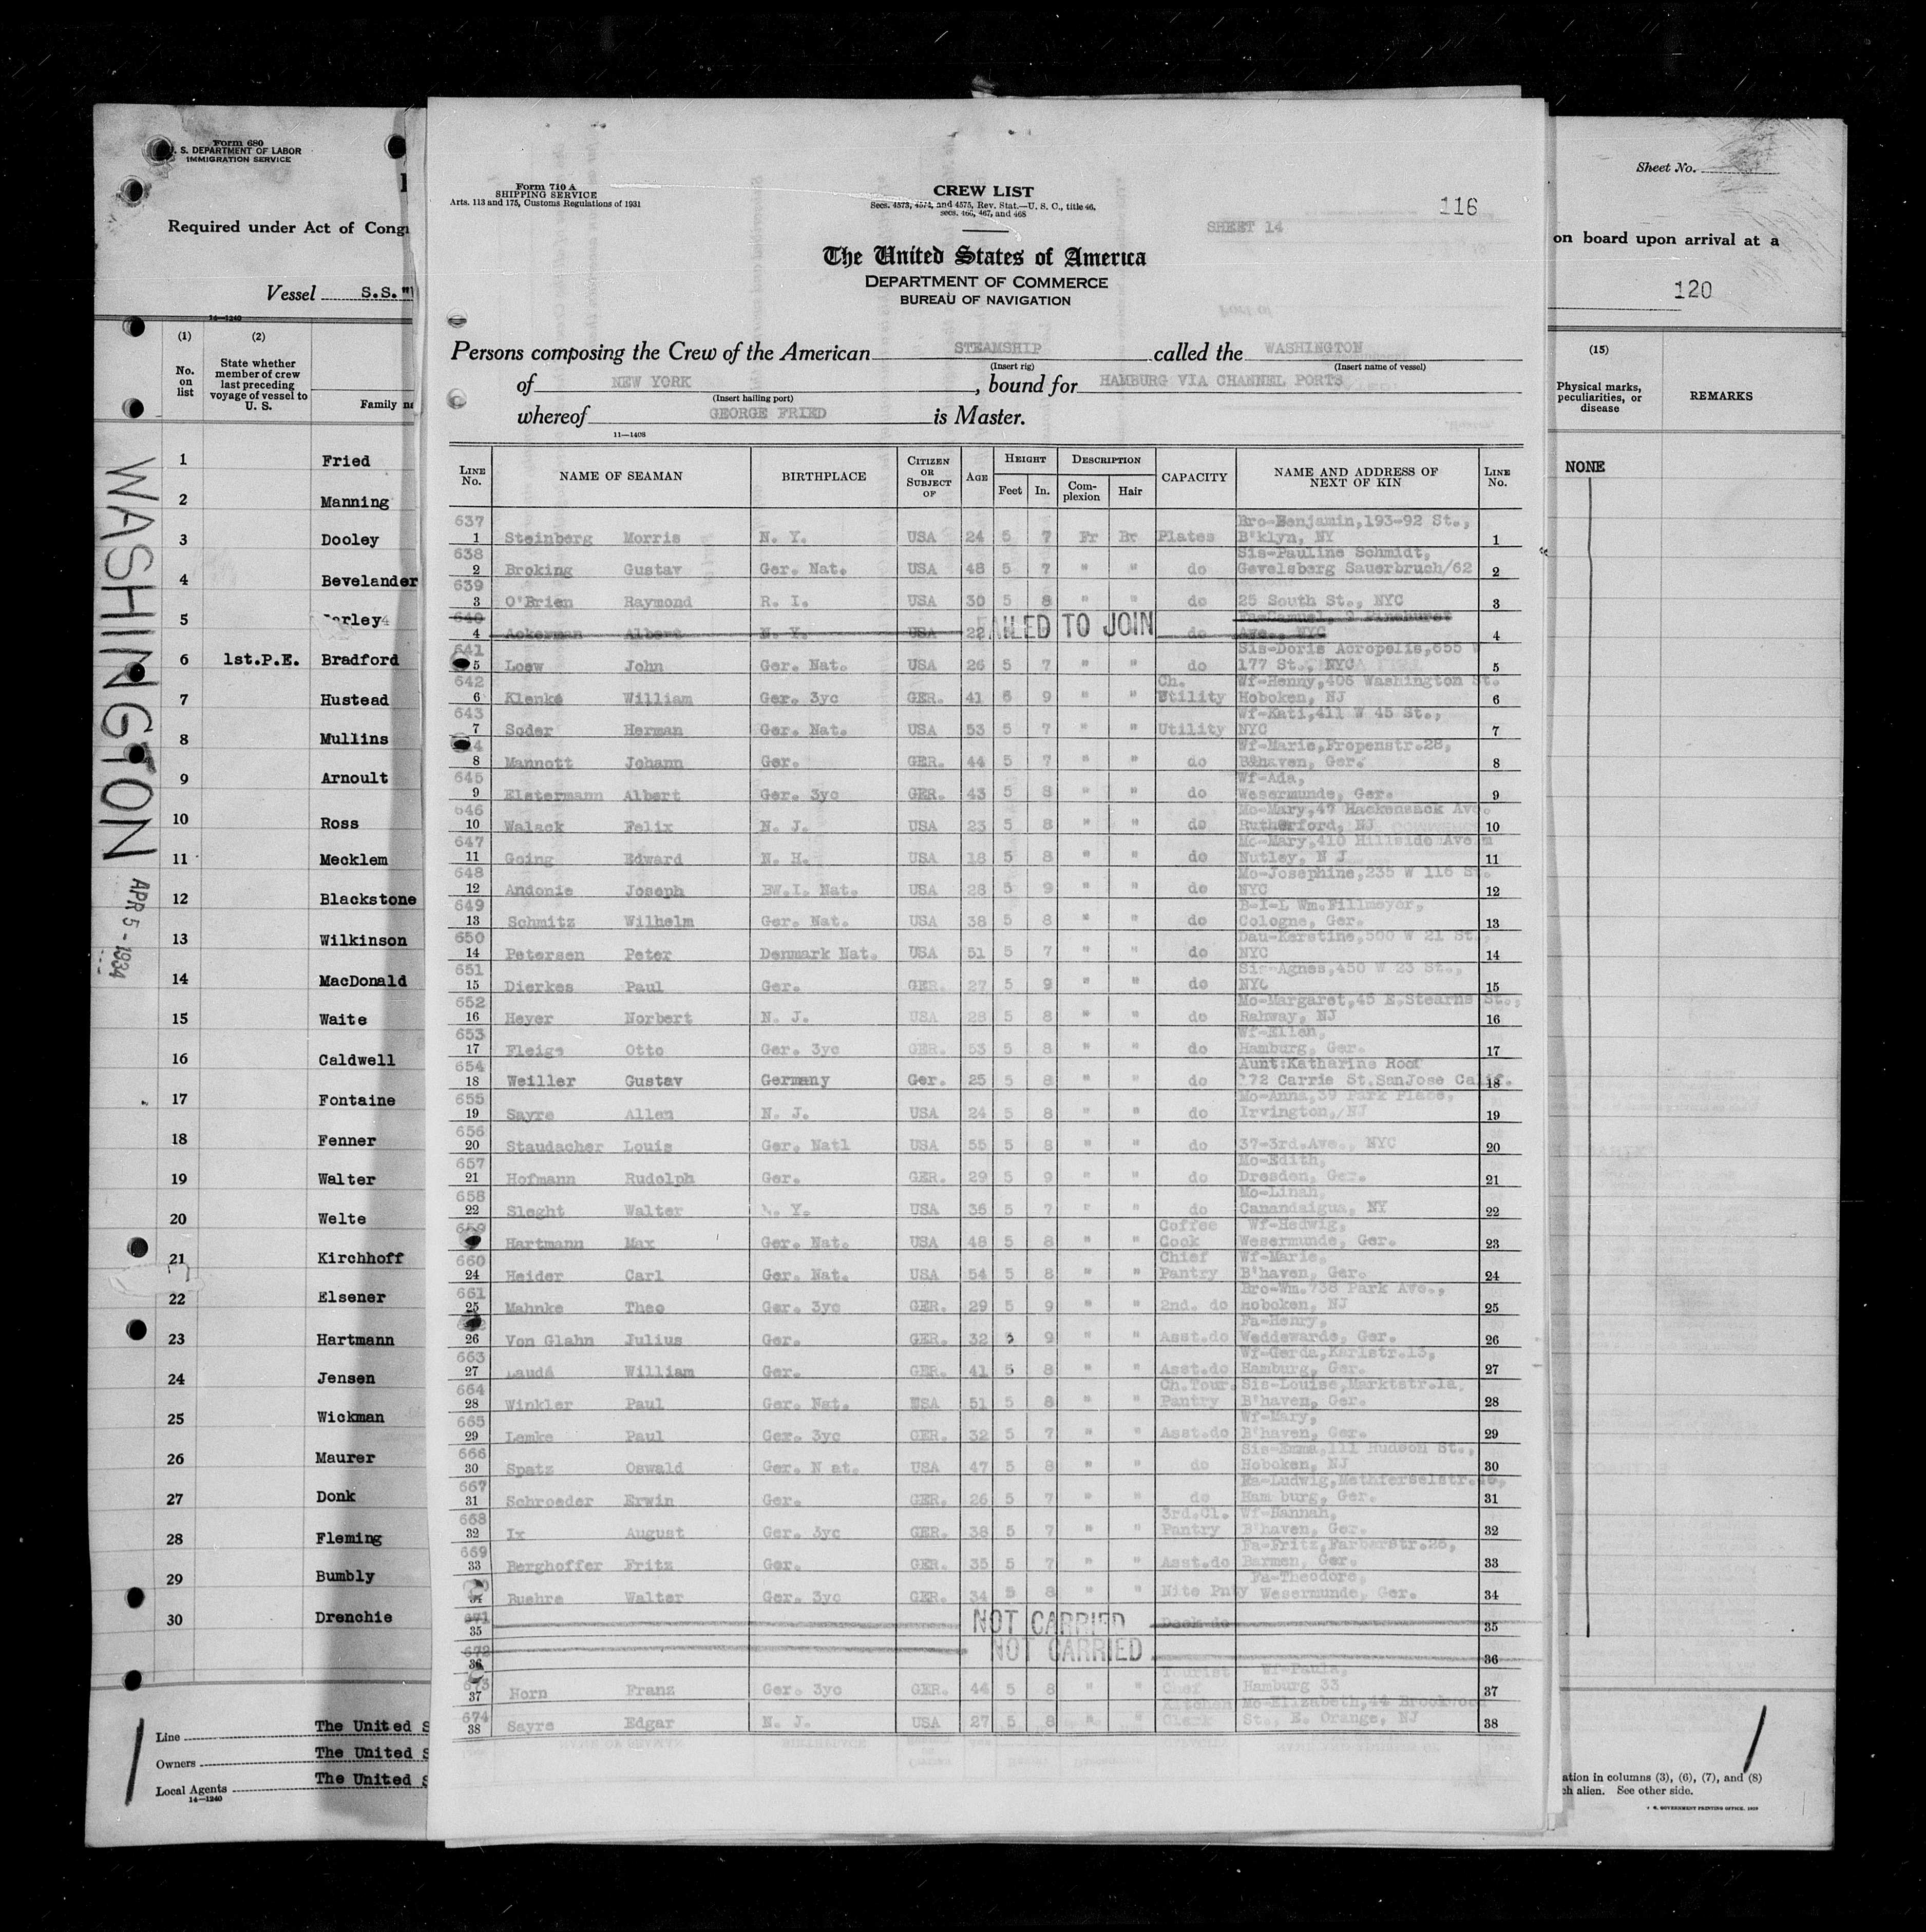 Form 680
S. DEPARTMENT OF LABOR
IMMIGRATION SERVICE
Required under Act of Cong
Vessel S.S.
14—1240
(1) (2)
No. on list
State whether member of crew last preceding voyage of vessel to U. S.
Family
1 Fried
2 Manning
3 Dooley
4 Bevelander
5
6 1st.P.E. Bradford
7 Hustead
8 Mullins
9 Arnoult
10 Ross
11 Mecklem
12 Blackstone
13 Wilkinson
14 MacDonald
15 Waite
16 Caldwell
17 Fontaine
18 Fenner
19 Walter
20 Welte
21 Kirchhoff
22 Elsener
23 Hartmann
24 Jensen
25 Wickman
26 Maurer
27 Donk
28 Fleming
29 Bumbly
30 Drenchie
WASHINGTON
APR 5 - 1934
Line The United S
Owners The United S
Local Agents The United S
14—1240
Form 710 A
SHIPPING SERVICE
Arts. 113 and 175, Customs Regulations of 1931
CREW LIST
Secs. 4573, 4574, and 4575, Rev. Stat.—U. S. C., title 46,
secs. 466, 467, and 468
116
SHEET 14
The United States of America
DEPARTMENT OF COMMERCE
BUREAU OF NAVIGATION
Persons composing the Crew of the American STEAMSHIP called the WASHINGTON
(Insert rig) (Insert name of vessel)
of NEW YORK, bound for HAMBURG VIA CHANNEL PORTS
(Insert hailing port)
whereof GEORGE FRIED is Master.
11—1408
LINE No. NAME OF SEAMAN BIRTHPLACE CITIZEN OR SUBJECT OF AGE HEIGHT Feet In. DESCRIPTION Complexion Hair CAPACITY NAME AND ADDRESS OF NEXT OF KIN LINE No.
637 Bro-Benjamin,193-92 St.,
1 Steinberg Morris N. Y. USA 24 5 7 Fr Br Plates B'klyn, NY 1
638 Sis-Pauline Schmidt,
2 Broking Gustav Ger. Nat. USA 48 5 7 " " do Gevelsberg Sauerbruch/62 2
639
3 O'Brien Raymond R. I. USA 30 5 8 " " do 25 South St., NYC 3
640 Fa-Samuel, 3 Pinehurst
4 Ackerman Albert N. Y. USA 22 FAILED TO JOIN do Ave., NYC 4
641 Sis-Doris Acropolis,655 W
5 Loew John Ger. Nat. USA 26 5 7 " " do 177 St., NYC 5
642 Ch. Wf-Henny,406 Washington St.
6 Klenke William Ger. 3yc GER. 41 6 9 " " Utility Hoboken, NJ 6
643 Wf-Kati,411 W 45 St.,
7 Soder Herman Ger. Nat. USA 53 5 7 " " Utility NYC 7
Wf-Marie,Fropenstr.28,
8 Mannott Johann Ger. GER. 44 5 7 " " do B'haven, Ger. 8
645 Wf-Ada,
9 Elstermann Albert Ger. 3yc GER. 43 5 8 " " do Wesermunde, Ger. 9
646 Mo-Mary,47 Hackensack Ave.
10 Walack Felix N. J. USA 23 5 8 " " do Rutherford, NJ 10
647 Mo-Mary,410 Hillside Ave
11 Going Edward N. H. USA 18 5 8 " " do Nutley, N J 11
648 Mo-Josephine,235 W 116 St.
12 Andonie Joseph BW.I. Nat. USA 28 5 9 " " do NYC 12
649 B-I-L Wm.Fillmeyer,
13 Schmitz Wilhelm Ger. Nat. USA 38 5 8 " " do Cologne, Ger. 13
650 Dau-Kerstine,500 W 21 St.,
14 Petersen Peter Denmark Nat. USA 51 5 7 " " do NYC 14
651 Sis-Agnes,450 W 23 St.,
15 Dierkes Paul Ger. GER. 27 5 9 " " do NYC 15
652 Mo-Margaret,45 E.Stearns St.,
16 Heyer Norbert N. J. USA 28 5 8 " " do Rahway, NJ 16
653 Wf-Ellen,
17 Fleige Otto Ger. 3yc GER. 53 5 8 " " do Hamburg, Ger. 17
654 Aunt:Katharine Roof
18 Weiller Gustav Germany Ger. 25 5 8 " " do 172 Carrie St.SanJose Calif. 18
655 Mo-Anna,39 Park Place,
19 Sayre Allen N. J. USA 24 5 8 " " do Irvington, NJ 19
656
20 Staudacher Louis Ger. Natl USA 55 5 8 " " do 37-3rd.Ave., NYC 20
657 Mo-Edith,
21 Hofmann Rudolph Ger. GER. 29 5 9 " " do Dresden, Ger. 21
658 Mo-Linah,
22 Sleght Walter N. Y. USA 36 5 7 " " do Canandaigua, NY 22
659 Coffee Wf-Hedwig,
Hartmann Max Ger. Nat. USA 48 5 8 " " Cook Wesermunde, Ger. 23
660 Chief Wf-Marie,
24 Heider Carl Ger. Nat. USA 54 5 8 " " Pantry B'haven, Ger. 24
661 Bro-Wm.738 Park Ave.,
25 Mahnke Theo Ger. 3yc GER. 29 5 9 " " 2nd. do Hoboken, NJ 25
Fa-Henry,
26 Von Glahn Julius Ger. GER. 32 5 9 " " Asst.do Weddewarde, Ger. 26
663 Wf-Gerda,Karlstr.13,
27 Laudé William Ger. GER. 41 5 8 " " Asst.do Hamburg, Ger. 27
664 Ch.Tour. Sis-Louise,Marktstr.1a,
28 Winkler Paul Ger. Nat. USA 51 5 8 " " Pantry B'haven, Ger. 28
665 Wf-Mary,
29 Lemke Paul Ger. 3yc GER. 32 5 7 " " Asst.do B'haven, Ger. 29
666 Sis-Emma,111 Hudson St.,
30 Spatz Oswald Ger. N at. USA 47 5 8 " " do Hoboken, NJ 30
667 Fa-Ludwig,
31 Schroeder Erwin Ger. GER. 26 5 7 " " do Ham burg, Ger. 31
668 3rd.Cl. Wf-Hannah,
32 Ix August Ger. 3yc GER. 38 5 7 " " Pantry B'haven, Ger. 32
669 Fa-Fritz,Farberstr.26,
33 Berghoffer Fritz Ger. GER. 35 5 7 " " Asst.do Barmen, Ger. 33
Fa-Theodore,
34 Buehre Walter Ger. 3yc GER. 34 5 8 " " Nite Pnty Wesermunde, Ger. 34
671
35 NOT CARRIED Deck do 35
672
36 NOT CARRIED 36
673 Tourist Wf-Paula,
37 Horn Franz Ger. 3yc GER. 44 5 8 " " Chef Hamburg 33 37
674 Kitchen Mo-Elizabeth,44 Brookwood
38 Sayre Edgar N. J. USA 27 5 8 " " Clerk St., E. Orange, NJ 38
Sheet No.
on board upon arrival at a
120
(15)
Physical marks, peculiarities, or disease
REMARKS
NONE
ation in columns (3), (6), (7), and (8)
ch alien. See other side.
S. GOVERNMENT PRINTING OFFICE.